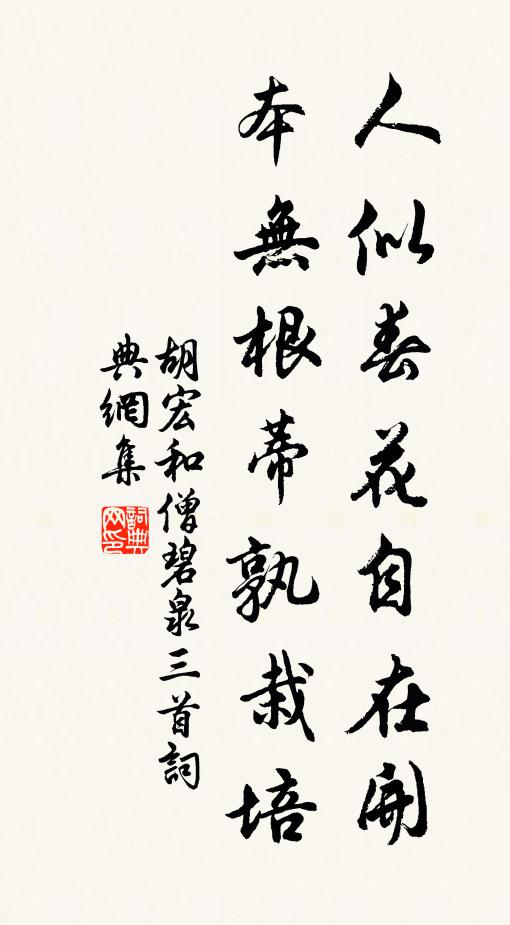 人似春花自在開
本無根蒂孰栽培
胡宏和僧碧泉三首詞
典網集
詞典网印